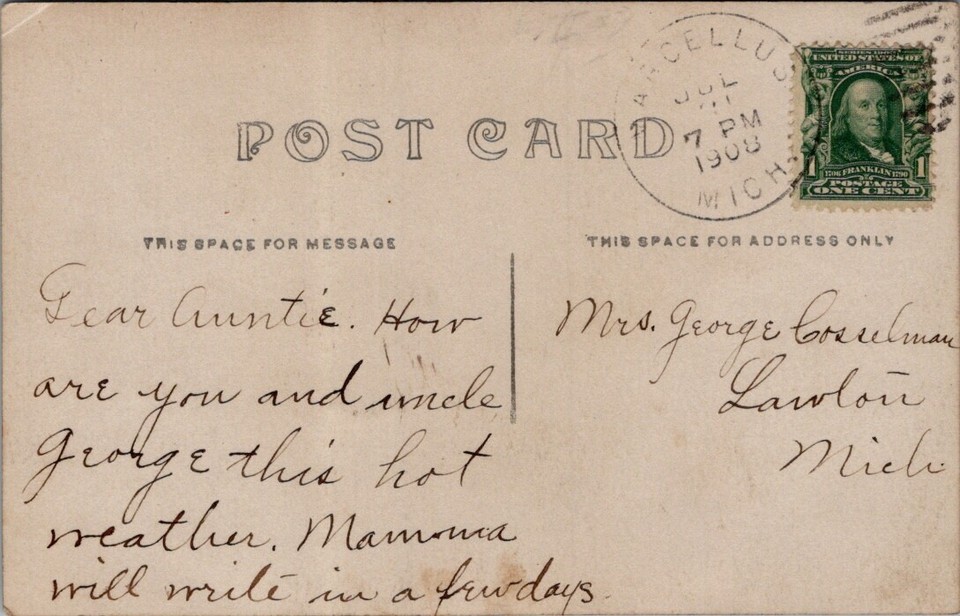 MARCELLUS
JUL
7 PM
1908
MICH.
SERIES 1902
UNITED STATES OF
AMERICA
1 1
1706 FRANKLIN 1790
POSTAGE
ONE CENT
POST CARD
THIS SPACE FOR MESSAGE
THIS SPACE FOR ADDRESS ONLY
Dear Auntie. How
are you and uncle
George this hot
weather. Mamma
will write in a few days.
Mrs. George Cosselman
Lawton
Mich.